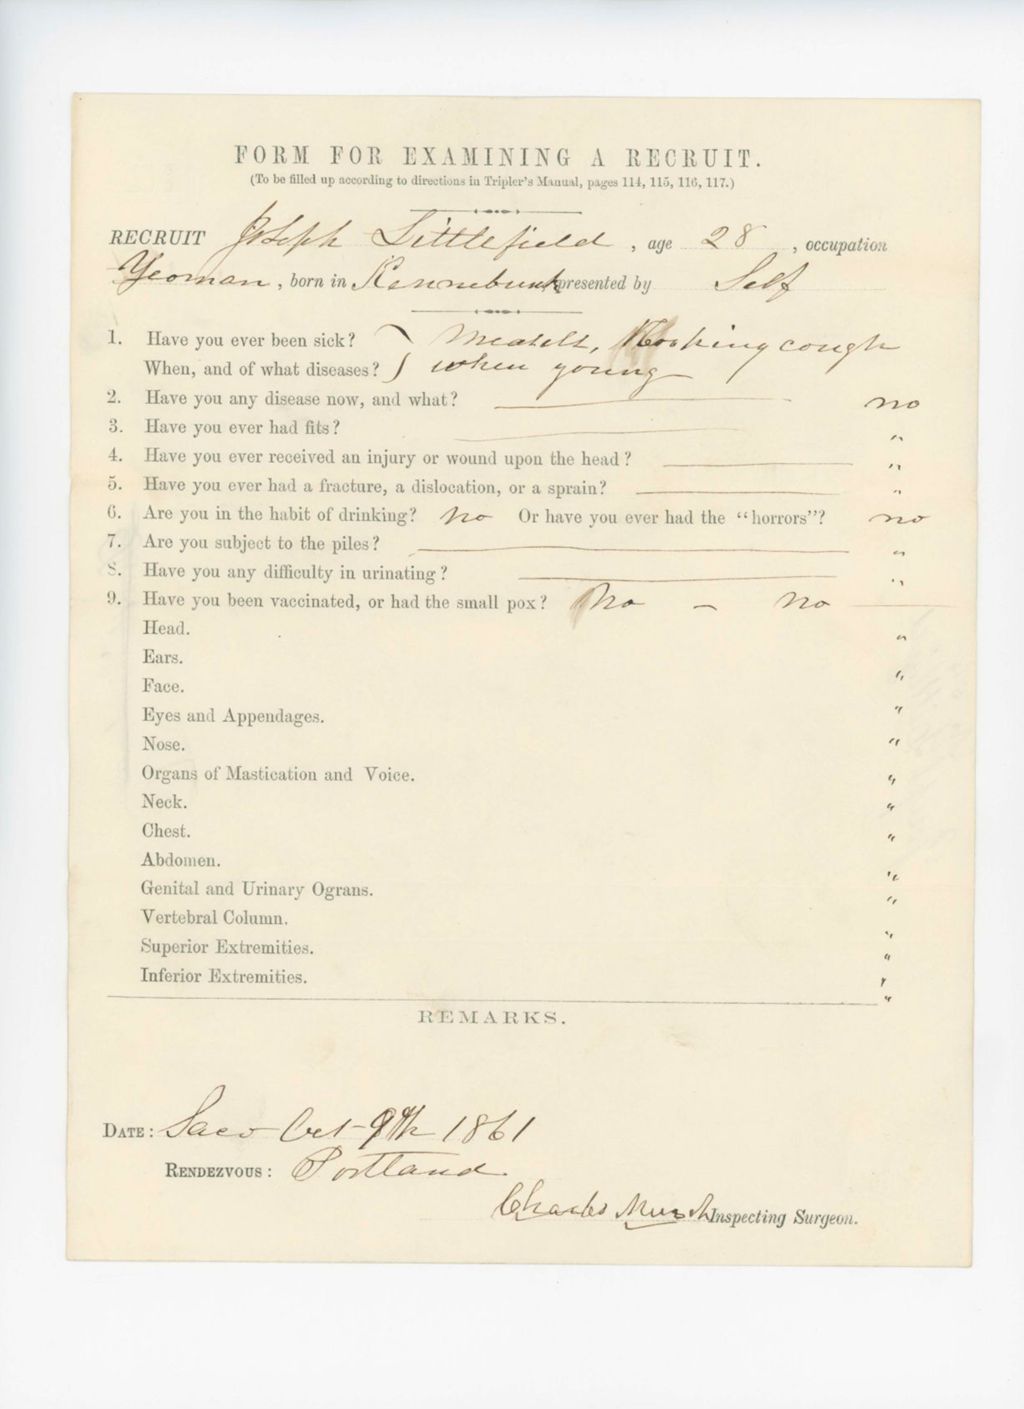 FORM FOR EXAMINING A RECRUIT.
(To be filled up according to directions in Tripler's Manual, pages 114, 115, 116, 117.)
RECRUIT Joseph Littlefield, age 28, occupation
Yeoman, born in Kennebunk presented by Self
1. Have you ever been sick? ) Measels, Hooking cough
When, and of what diseases? ) when young
2. Have you any disease now, and what? no
3. Have you ever had fits? "
4. Have you ever received an injury or wound upon the head? "
5. Have you ever had a fracture, a dislocation, or a sprain? "
6. Are you in the habit of drinking? No Or have you ever had the "horrors"? no
7. Are you subject to the piles? "
8. Have you any difficulty in urinating? "
9. Have you been vaccinated, or had the small pox? No – no
Head. "
Ears. "
Face. "
Eyes and Appendages. "
Nose. "
Organs of Mastication and Voice. "
Neck. "
Chest. "
Abdomen. "
Genital and Urinary Ograns. "
Vertebral Column. "
Superior Extremities. "
Inferior Extremities. "
"
REMARKS.
DATE: Saco Oct 9th 1861
RENDEZVOUS: Portland
Charles Inspecting Surgeon.